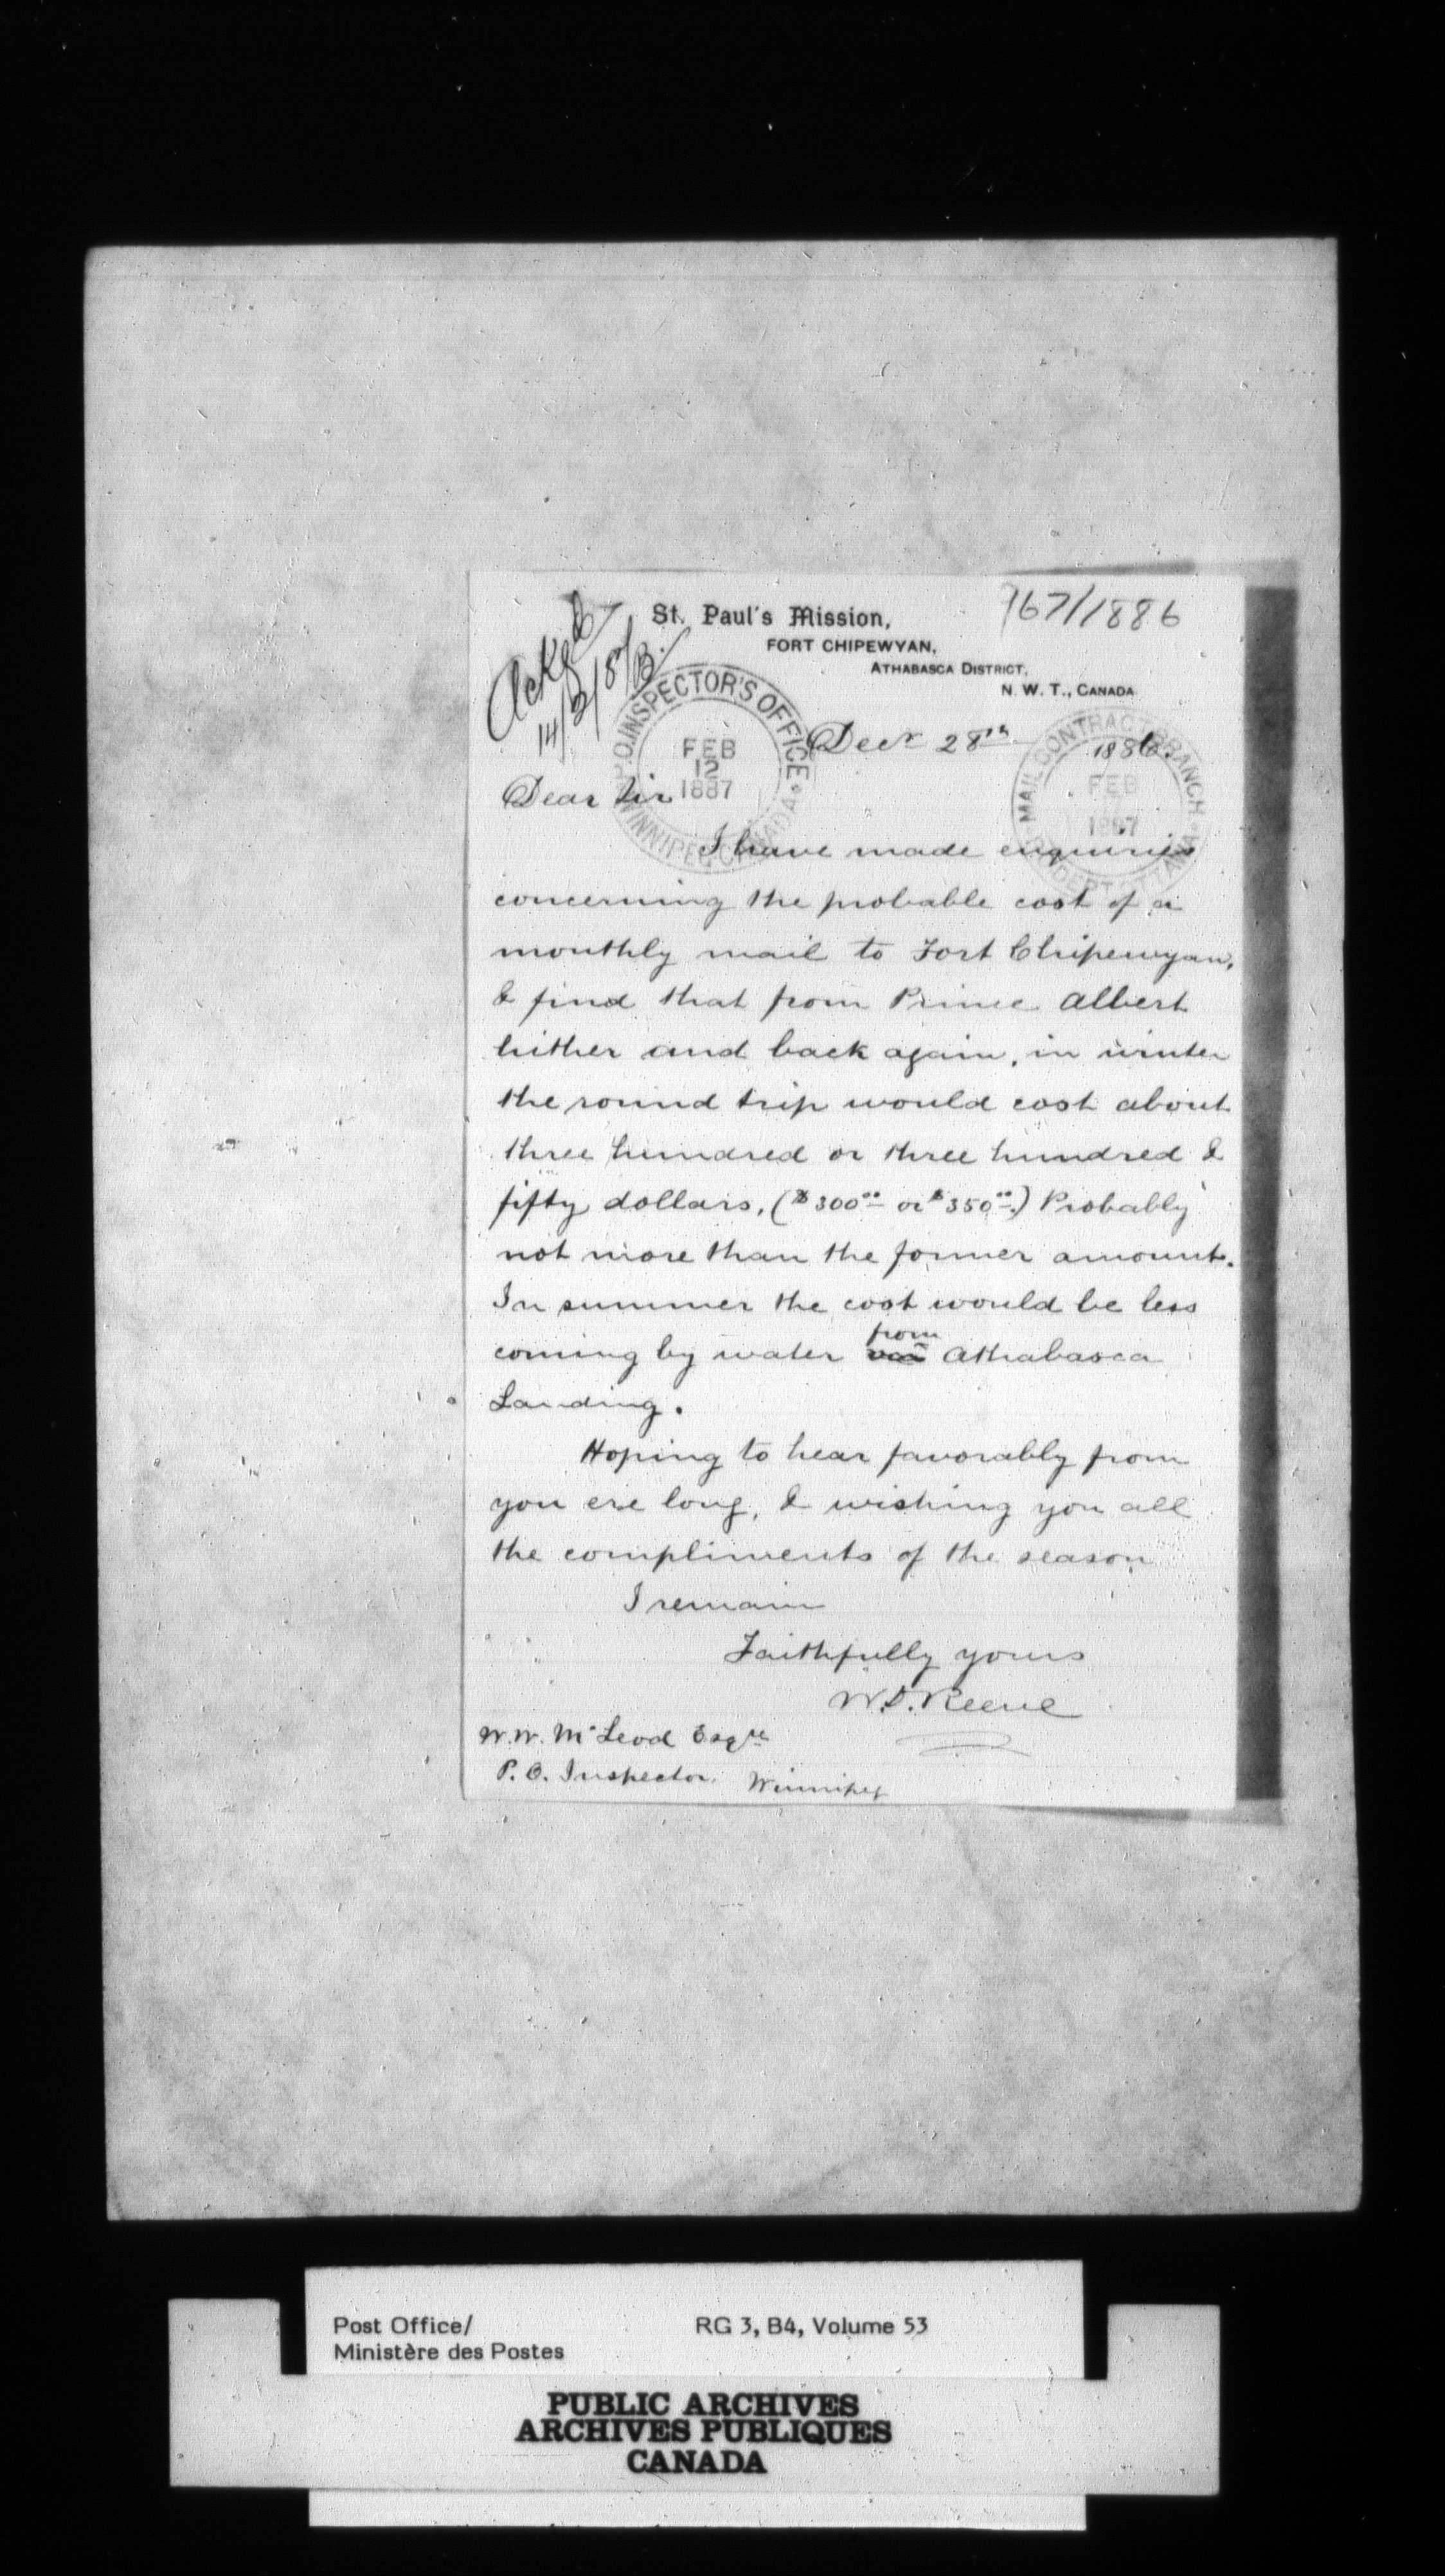 767/1886
St. Paul's Mission,
FORT CHIPEWYAN,
ATHABASCA DISTRICT,
N. W. T., CANADA
Ackgd
14/2/87
P.O. INSPECTOR'S OFFICE
FEB
12
1887
WINNIPEG CANADA
MAIL CONTRACT BRANCH
FEB
1887
P.O. DEPT OTTAWA
Decr 28th 1886.
Dear Sir
I have made enquiries
concerning the probable cost of a
monthly mail to Fort Chipewyan,
& find that from Prince Albert
hither and back again, in winter
the round trip would cost about
three hundred or three hundred &
fifty dollars, ($300.00 or $350.00.) Probably
not more than the former amount.
In summer the cost would be less
coming by water from Athabasca
Landing.
Hoping to hear favorably from
you ere long, & wishing you all
the compliments of the season
I remain
Faithfully yours
W.D. Reeve
W.W. McLeod Esqre
P.O. Inspector. Winnipeg
Post Office/
Ministère des Postes
RG 3, B4, Volume 53
PUBLIC ARCHIVES
ARCHIVES PUBLIQUES
CANADA